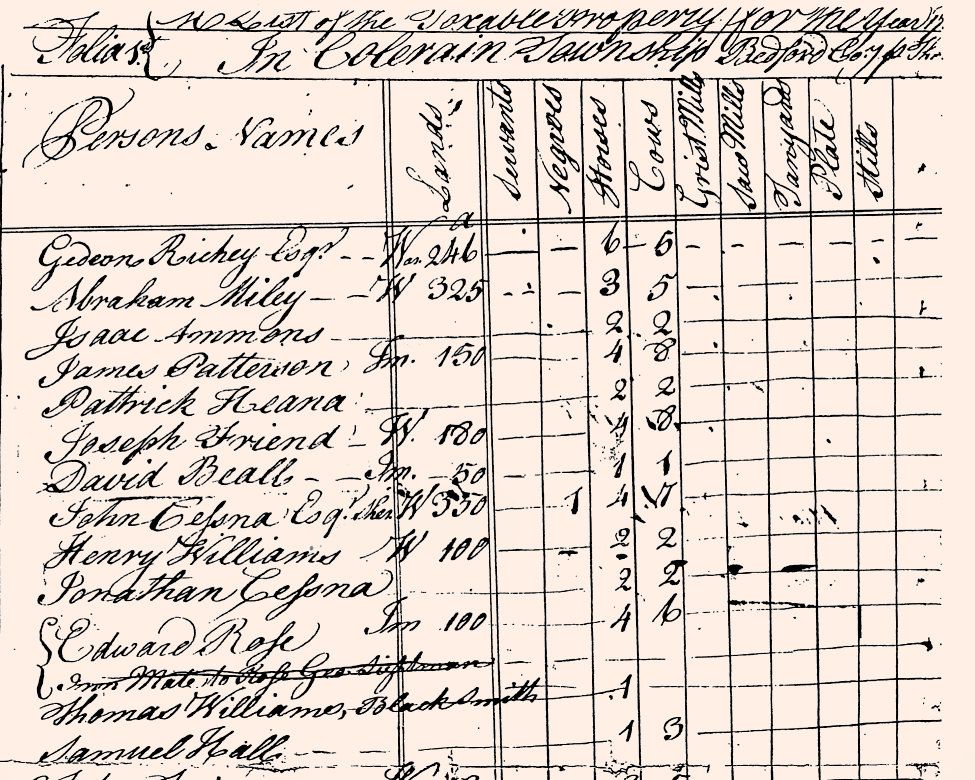 A List of the Taxable Property for the Year
Folia 1st In Colerain Township Bedford Coty
Persons Names Lands Servants Negroes Horses Cows Grist Mills Saw Mills Tanyards Plate Stills
a
Gedeon Richey Esqr. - - War. 246 - - 6 - 5 - - - - -
Abraham Miley - - W 325 - - 3 5
Isaac Ammons 2 2
James Patterson Im. 150 4 8
Pattrick Heana 2 2
Joseph Friend - W. 180 4 8
David Beall - - Im. 50 1 1
John Cessna Esqr. W 350 1 4 7
Henry Williams W 100 - 2 2
Jonathan Cessna 2 2
Edward Rose Im 100 4 6
Inn Mate to Rose Geo
Thomas Williams, Black Smith 1
Samuel Hall - - 1 3